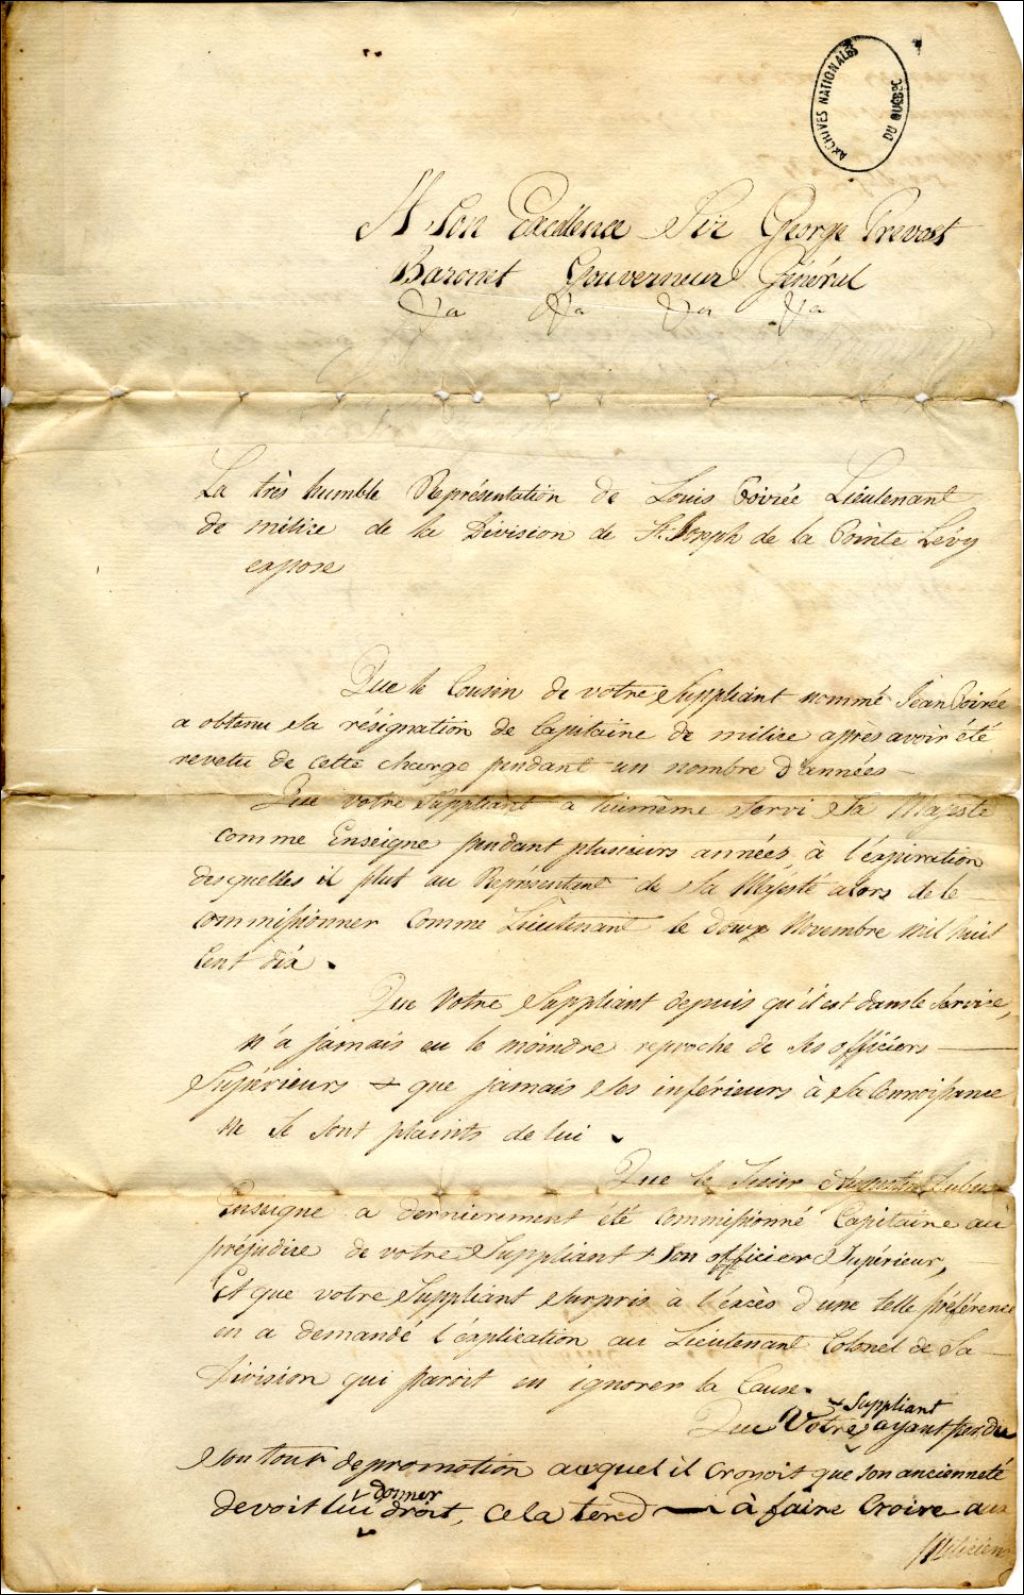 ARCHIVES NATIONALES
DU QUÉBEC
A Son Excellence Sir George Prevost
Baronet Gouverneur Général
&a &a &a &a
La très humble Représentation de Louis Poirée Lieutenant
de milice de la Division de St. Joseph de la Pointe Lévy
expose
Que le Cousin de votre Suppliant nommé Jean Poirée
a obtenu sa résignation de Capitaine de milice après avoir été
revetu de cette charge pendant un nombre d'années —
Que votre Suppliant a luimême servi Sa Majesté
comme Enseigne pendant plusieurs années, à l'expiration
desquelles il plut au Représentant de Sa Majesté alors de le
commissionner comme Lieutenant le douze Novembre mil huit
Cent dix.
Que Votre Suppliant depuis qu'il est dans le Service,
n'a jamais eu le moindre reproche de ses officiers —
Supérieurs & que jamais ses inférieurs à sa Connoissance
ne se sont plaints de lui.
Que le Sieur Augustin
Enseigne a dernierement été Commissionné Capitaine au
préjudice de votre Suppliant & Son officier Supérieur,
Et que votre Suppliant surpris à l'excès d'une telle préférence
en a demandé l'explication au Lieutenant Colonel de Sa —
Division qui paroit en ignorer la Cause.
Suppliant
Que Votre ayant perdu
son tour de promotion auquel il croyoit que son ancienneté
donner
devoit lui droit, cela tend — à faire Croire aux
Miliciens